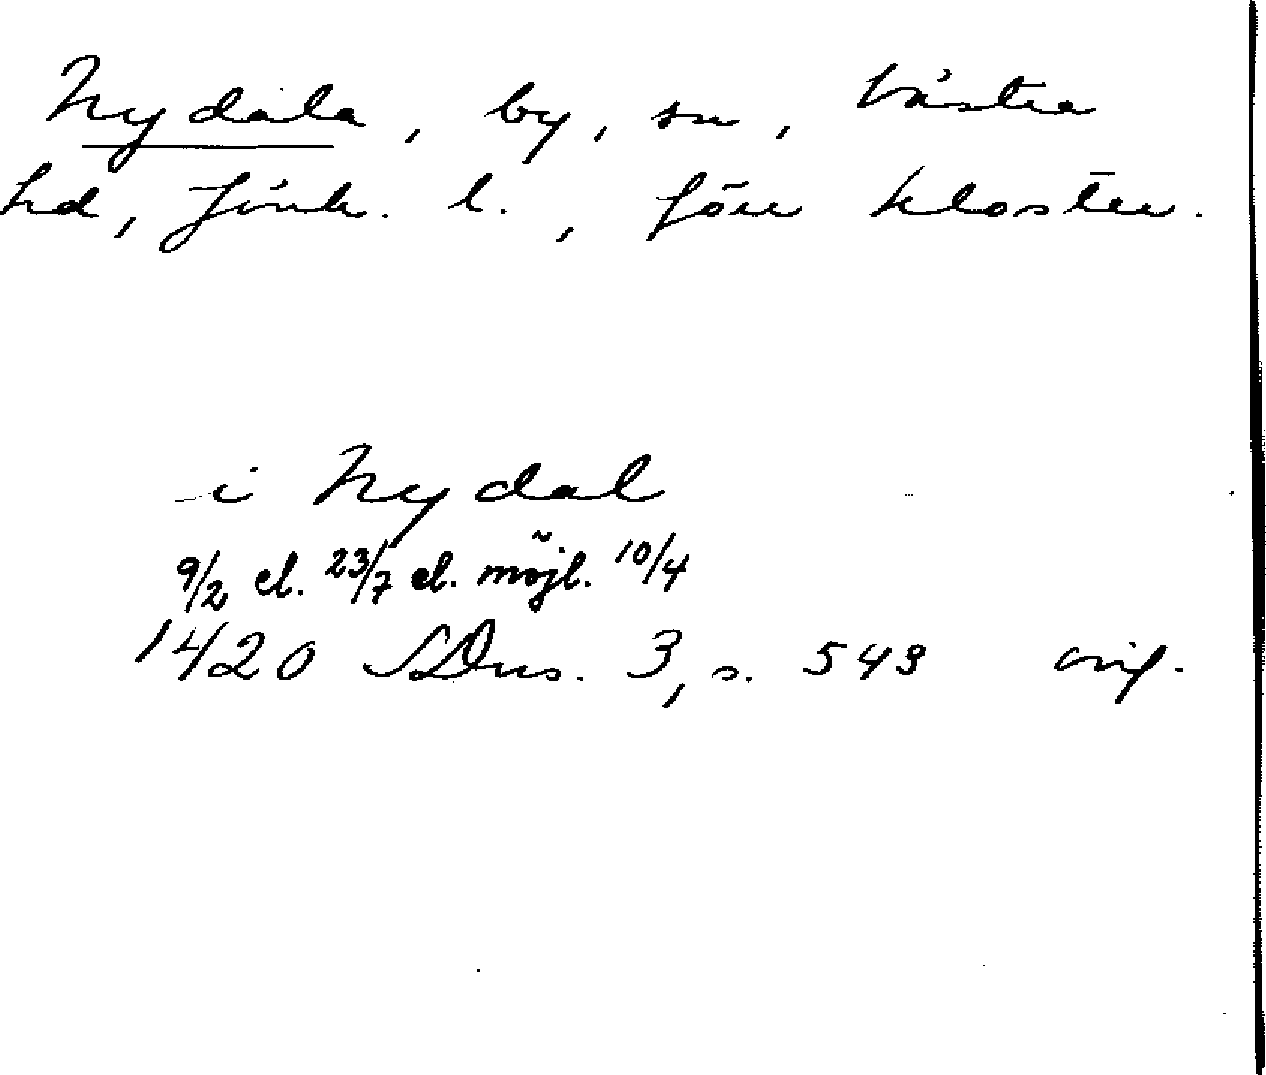 Nydala, by, sn, Västra
hd, Jönk. l., före kloster.
i Nydal
9/2 el. 23/7 el. möjl. 10/4
1420 SDns. 3, s. 543 orig.